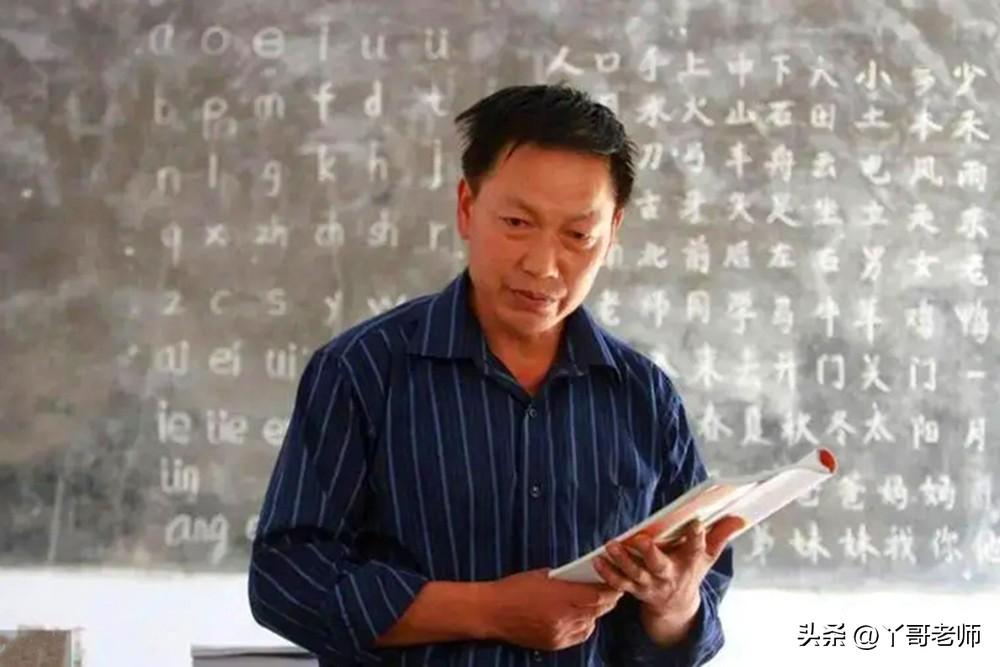 a o e i u ü
b p m f d t
n l g k h j
q x zh ch sh r
z c s y w
ai ei ui
ie üe e
ün
ang
人 口 手 上 中 下 小 少
水 火 山 石 田 土 木 禾
刀 车 舟 云 电 风 雨
古 立 东
北 前 后 左 右 男 女 毛
老 师 同 学 马 牛 羊 鸡 鸭
来 去 开 门 关 门 一
春 夏 秋 冬 太 阳 月
爸 妈 妈
弟 妹 妹 我 你 他
头条 @丫哥老师